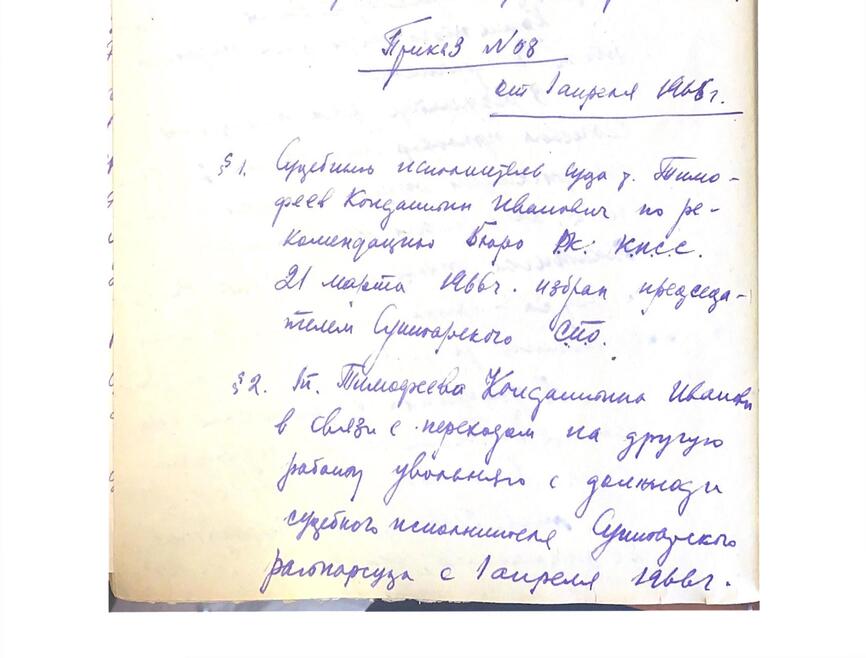 Приказ №08
от 1 апреля 1966г.
§1. Судебный исполнитель суда т. Тимо-
феев Кондаштин Иванович по ре-
комендацию Бюро РК. КПСС.
21 марта 1966г. избран председа-
телем Сунтарского СПО.
§2. т. Тимофеева Кондаштина Иванови
в связи с переходом на другую
работу увольняю с должности
судебного исполнителя Сунтарского
райнарсуда с 1 апреля 1966г.